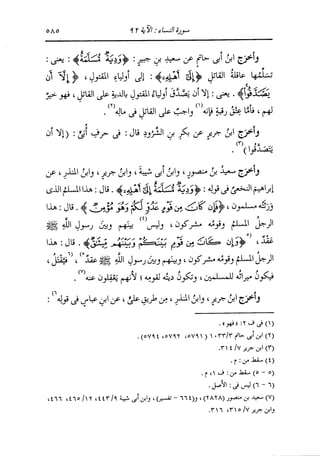 سورة النساء : الآية ٩٢ ٥٨٥
وأخرج ابنُ أبى حاتمٍ عن سعيدِ بنِ جبيرٍ : ﴿وَدِيَةٌ مُّسَلَّمَةٌ﴾ : يعنى :
تسلِّمُها عاقلةُ القاتلِ ﴿إِلَىٰٓ أَهْلِهِۦٓ﴾ : إلى أولياءِ المقتولِ ، ﴿إِلَّآ أَن
يَصَّدَّقُوا۟﴾ . يعنى : إلا أن يصَّدَّقَ أولياءُ المقتولِ بالديةِ على القاتلِ ، فهو خيرٌ
لهم ، فأمَّا عتقُ رقبةٍ فإنه(١) واجبٌ على القاتلِ فى مالِه(٢) .
وأخرج ابنُ جريرٍ عن بكرِ بنِ الشَّرودِ قال : فى حرفِ أُبىٍّ : (إلا أن
يتصدَّقوا)(٣) .
وأخرج سعيدُ بنُ منصورٍ ، وابنُ أبى شيبةَ ، وابنُ جريرٍ ، وابنُ المنذرِ ، عن
إبراهيمَ النخعىِّ فى قولِه : ﴿وَدِيَةٌ مُّسَلَّمَةٌ إِلَىٰٓ أَهْلِهِۦ﴾ . قال : هذا المسلمُ الذى
ورثتُه مسلمون ، ﴿فَإِن كَانَ مِن قَوْمٍ عَدُوٍّ لَّكُمْ وَهُوَ مُؤْمِنٌ﴾ . قال : هذا
الرجلُ المسلمُ وقومُه مشركون ، وليس(٤) بينَهم وبينَ رسولِ اللهِ ﷺ
عقدٌ ، ﴿وَإِن كَانَ مِن قَوْمٍۭ بَيْنَكُمْ وَبَيْنَهُم مِّيثَٰقٌ﴾ . قال : هذا
الرجلُ المسلمُ وقومُه مشركون ، وبينَهم وبينَ رسولِ اللهِ ﷺ عقدٌ(٥) ، فيُقتلُ ،
فيكونُ ميراثُه للمسلمين ، وتكونُ ديتُه لقومِه ؛ لأنهم يَعقِلون عنه(٧) .
وأخرج ابنُ جريرٍ ، وابنُ المنذرِ ، من طريقِ علىٍّ ، عن ابنِ عباسٍ فى قولِه(٦) :
(١) فى ف ٢ : «فهو» .
(٢) ابن أبى حاتم ١٠٣٣/٣ (٥٧٩١، ٥٧٩٢، ٥٧٩٤) .
(٣) ابن جرير ٣١٤/٧ .
(٤) سقط من : م .
(٥ - ٥) سقط من : ف ١، م .
(٦ - ٦) ليس فى : الأصل .
(٧) سعيد بن منصور (٢٨٢٨) ، و(٦٦٤ - تفسير) ، وابن أبى شيبة ٤٤٣/٩، ٤٦٥/١٢، ٤٦٦،
وابن جرير ٣١٥/٧، ٣١٦ .